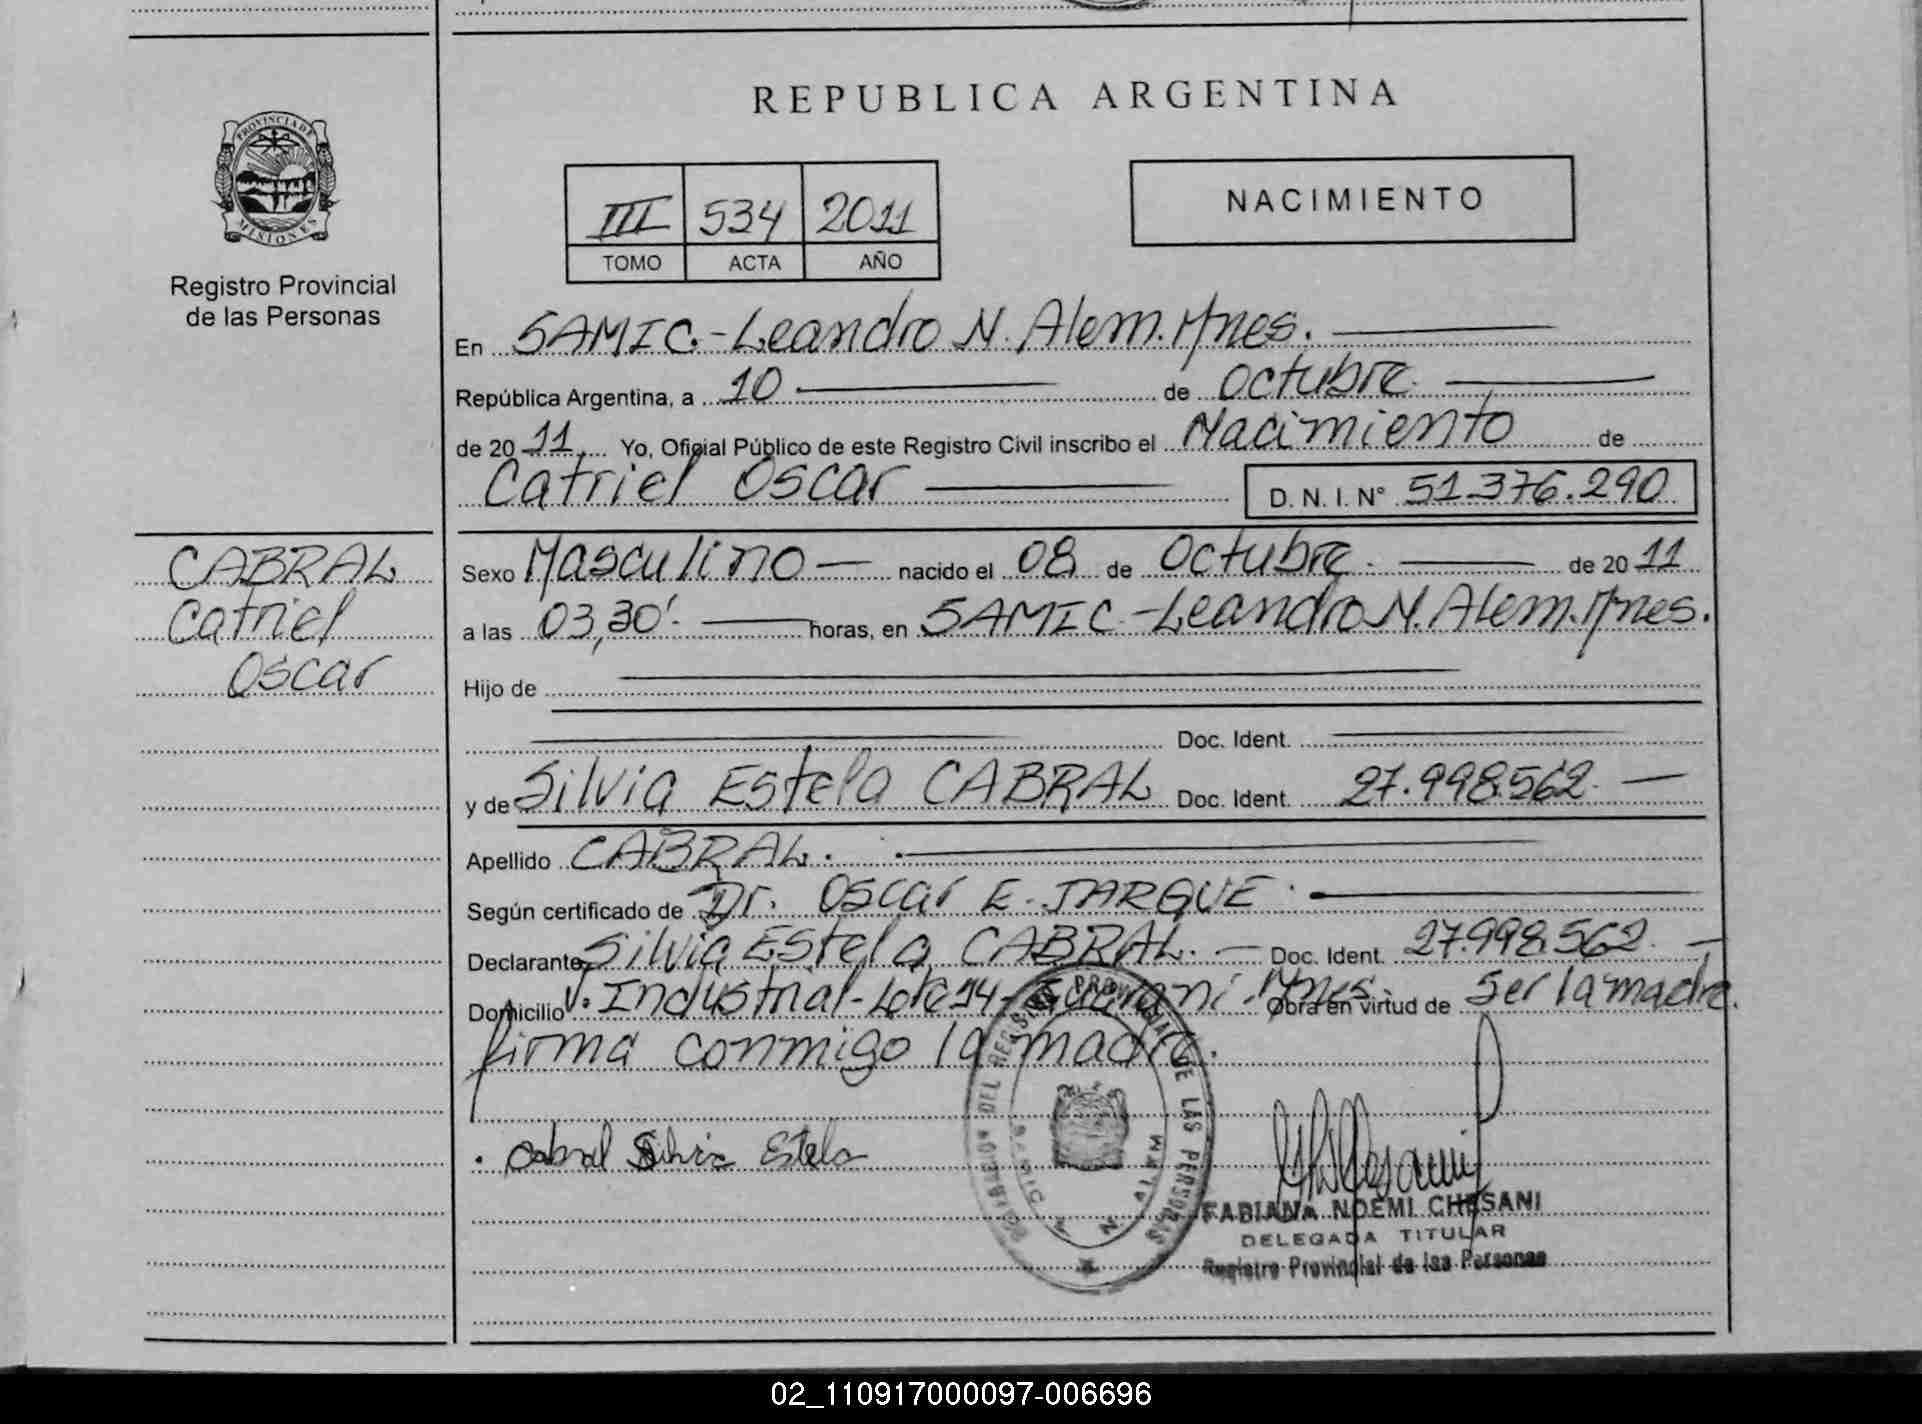 REPUBLICA ARGENTINA
PROVINCIA DE
MISIONES
Registro Provincial
de las Personas
III 534 2011
TOMO ACTA AÑO
NACIMIENTO
En SAMIC.-Leandro N. Alem. Mnes.
República Argentina, a 10 de octubre.
de 20 11 Yo, Oficial Público de este Registro Civil inscribo el Nacimiento de
Catriel Oscar D. N. I. N° 51.376.290
CABRAL
Catriel
Oscar
Sexo Masculino nacido el 08 de Octubre. de 20 11
a las 03,30'. horas, en SAMIC.-Leandro N. Alem. Mnes.
Hijo de
Doc. Ident.
y de Silvia Estela CABRAL Doc. Ident. 27.998.562.
Apellido CABRAL.
Según certificado de Dr. Oscar E. JARQUE.
Declarante Silvia Estela CABRAL. Doc. Ident. 27.998.562.
Domicilio Industrial-Lote 14- Mnes. Obra en virtud de Ser la madre.
firma conmigo la madre.
Cabral Silvia Estela
DEL REGISTRO PROVINCIAL DE LAS PERSONAS
SAMIC
L. N. ALEM
FABIANA NOEMI CHESANI
DELEGADA TITULAR
Registro Provincial de las Personas
02_110917000097-006696